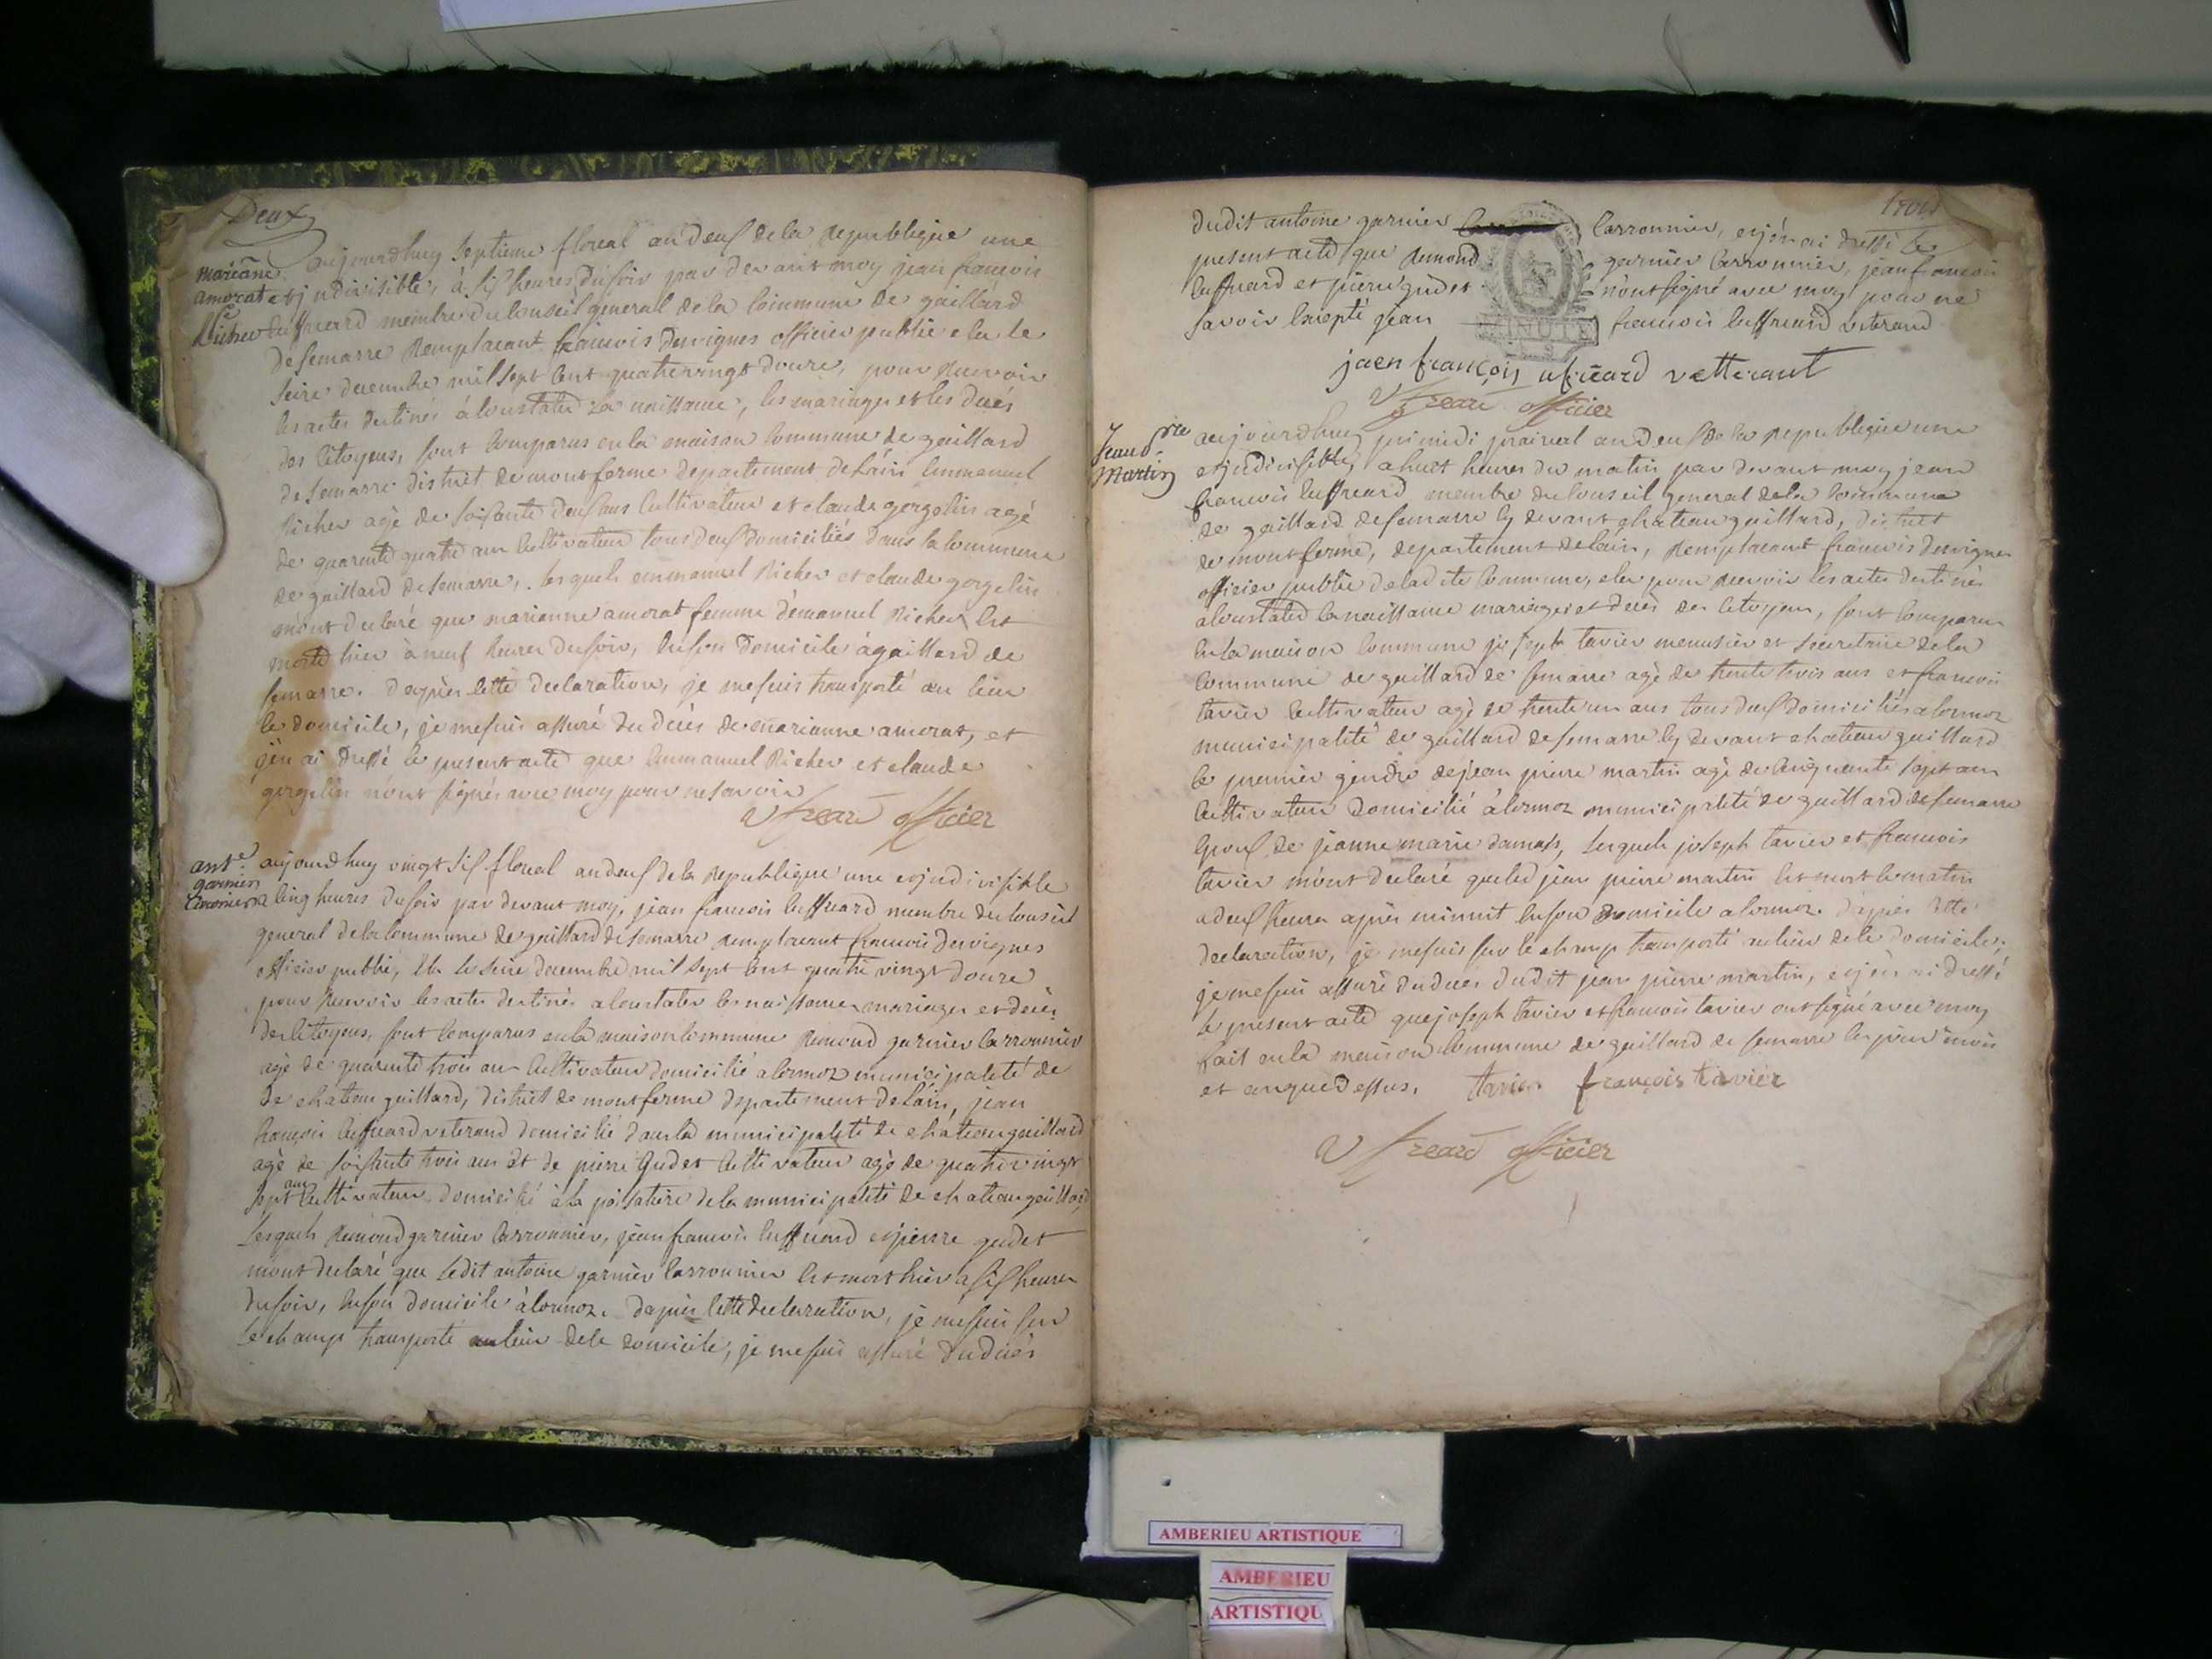 Deux
mariane
amorat fe
Richer
aujourdhuy septieme floreal an deux de la republique une
et jndivisible, à six heures du soir par devant moy jean francois
buffreard membre du Conseil general de la Commune de gaillard
de semarre remplacant francois desvignes officier public elu le
seize decembre mil sept cent quatrevingt douze, pour recevoir
les actes destinés à constater la naissance, les mariages et les decés
des citoyens, sont comparus en la maison Commune de gaillard
de semarre district de montferme departement de L'ain Emmanuel
Richer agé de soisante deux ans Cultivateur et claude gorgelin agé
de quarente quatre ans Cultivateur tous deux domiciliés dans la Commune
de gaillard de semarre, lesquels emmanuel Richer et claude gorgelin
m'ont declaré que marianne amorat femme d'emanuel Richer est
morte hier à neuf heures du soir, en son domicile à gaillard de
semarre. d'après cette declaration, je me suis transporté au lieu
le domicile, je me suis assuré du decés de marianne amorat, et
j'en ai dressé le present acte que Emmanuel Richer et claude
gorgelin n'ont signés avec moy pour ne savoir
ufreard officier
ant.e
garnier
Caronier
aujourdhuy vingt six floreal an deux de la republique une et jndivisible
cinq heures du soir par devant moy, jean francois buffreard membre du Conseil
general de la Commune de gaillard de semarre remplacant francois desvignes
officier public, elu le seize decembre mil sept cent quatre vingt douze
pour recevoir les actes destinés a constater les naissances mariages et decés
des citoyens, sont comparus en la maison Commune Remond garnier Carronnier
agé de quarente trois ans Cultivateur domicilié a Cormoz municipalité de
de chateau gaillard, district de montferme departement de L'ain, jean
françois buffreard veterand domicilié dans la municipalité de chateau gaillard
agé de soisante trois ans et de pierre gudet Cultivateur agé de quatre vingt
sept ans Cultivateur domicilié à la poisatiere de la municipalité de chateau gaillard,
Lesquels Remond garnier Carronnier, jean francois buffreard et pierre gudet
m'ont declaré que ledit antoine garnier Carronnier est mort hier a six heures
du soir, en son domicile à Cormoz. d'après cette declaration, je me suis sur
le champ transporté au lieu de le domicile, je me suis assuré du decés
trois
dudit antoine garnier Carronnier, et j'en ai dressé le
present acte que Remond garnier Carronnier, jean francois
buffreard et pierre gudet n'ont signé avec moy pour ne
savoir Excepté jean francois buffreard veterand
MINUTE
jaen françois ufreard vetterant
ufreard officier
Jean p.re
Martin
aujourdhuy primidi praireal an deux de la republique une
et jndivisible, a huit heures du matin par devant moy jean
francois buffreard membre du Conseil general de la Commune
de gaillard de semarre cy devant chateau gaillard, district
de montferme, departement de L'ain, remplacant francois desvignes
officier public de la dite Commune, elu pour recevoir les actes destinés
a constater la naissance mariages et decés des citoyens, sont comparus
en la maison Commune joseph tavier menusier et secretaire de la
Commune de gaillard de semarre agé de trente trois ans et francois
tavier Cultivateur agé de trente un ans tous deux domiciliés a Cormoz
municipalité de gaillard de semarre cy devant chateau gaillard
le premier gendre de jean pierre martin agé de cinquante sept ans
Cultivateur domicilié à Cormoz municipalité de gaillard de semarre
epoux de jeanne marie damas, Lesquels joseph tavier et francois
tavier m'ont declaré que led jean pierre martin est mort ce matin
a deux heures après minuit en son domicile a Cormoz. d'après cette
declaration, je me suis sur le champ transporté au lieu de le domicile,
je me suis assuré du decés dudit jean pierre martin, et j'en ai dressé
le present acte que joseph tavier et francois tavier ont signé avec moy
fait en la maison Commune de gaillard de semarre les jour mois
et an que dessus. tavier françois tavier
ufreard officier
AMBERIEU ARTISTIQUE
AMBERIEU
ARTISTIQU